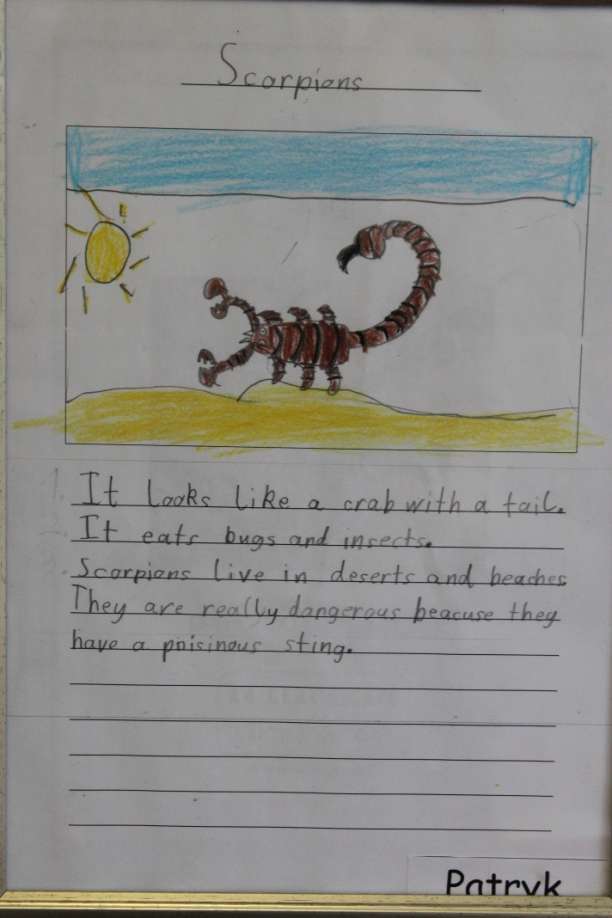 Scorpions
1. It looks like a crab with a tail.
It eats bugs and insects.
Scorpions live in deserts and beaches
They are really dangerous beacuse they
have a poisinous sting.
Patryk